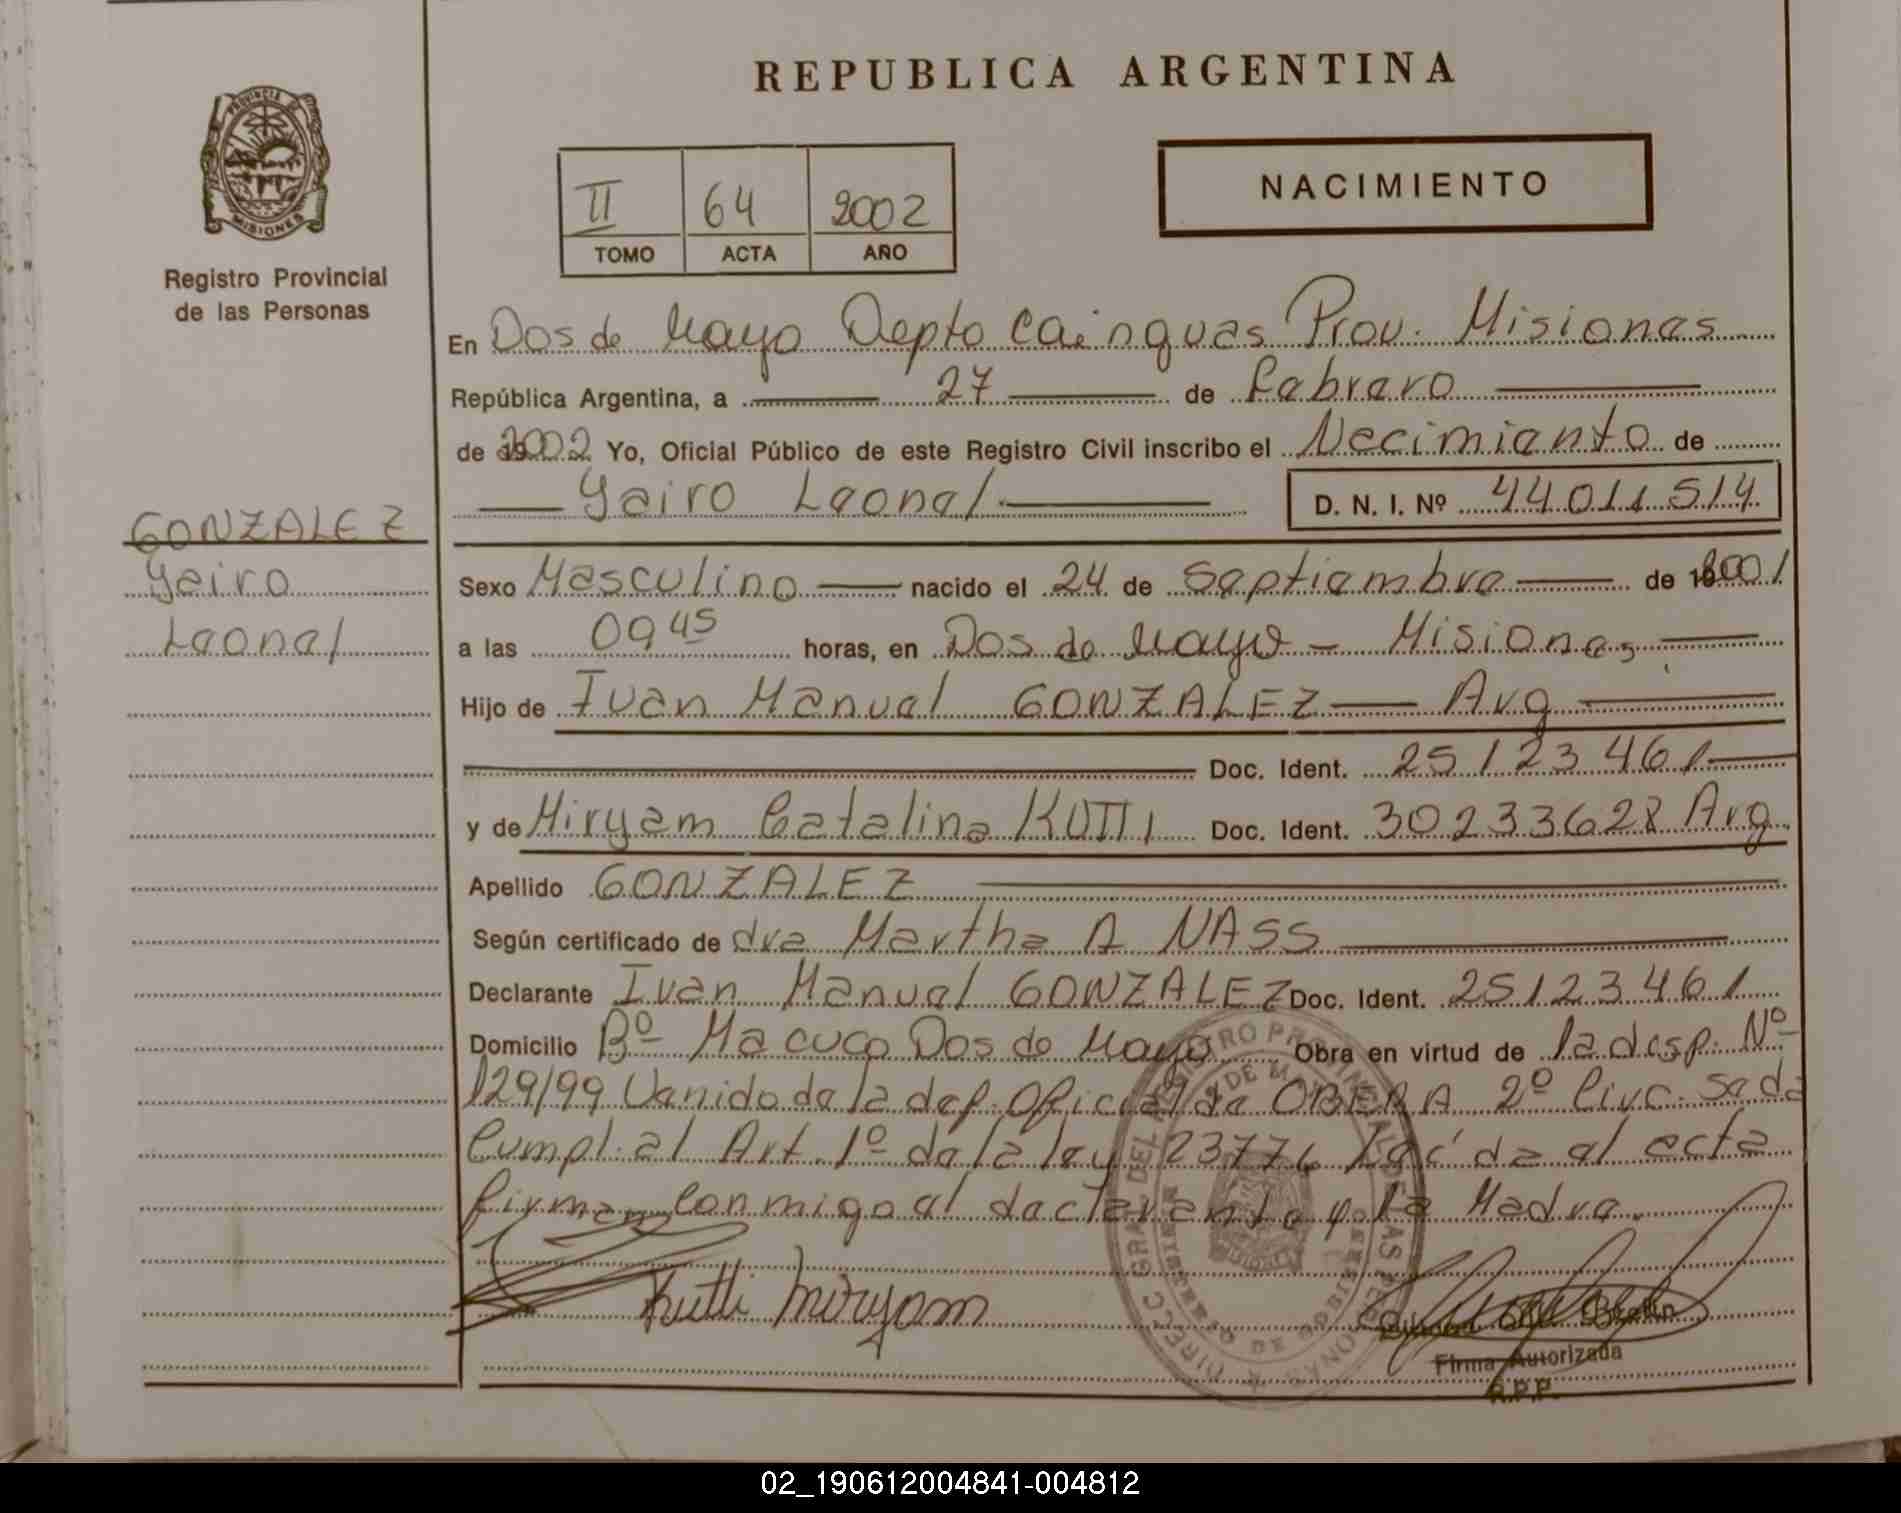 REPUBLICA ARGENTINA
PROVINCIA DE
MISIONES
Registro Provincial
de las Personas
II 64 2002
TOMO ACTA AÑO
NACIMIENTO
En Dos de Mayo Depto Cainguas Prov. Misiones
República Argentina, a 27 de Febrero
de 2002 Yo, Oficial Público de este Registro Civil inscribo el Necimiento de
Yairo Leonel D. N. I. Nº 44.011.514
GONZALEZ
Yairo
Leonel
Sexo Masculino nacido el 24 de Septiembre de 2001
a las 09 45 horas, en Dos de Mayo - Misiones
Hijo de Ivan Manuel GONZALEZ Arg
Doc. Ident. 25123461
y de Miryam Catalina KUTTI Doc. Ident. 30233628 Arg
Apellido GONZALEZ
Según certificado de dra Martha A NASS
Declarante Ivan Manuel GONZALEZ Doc. Ident. 25123461
Domicilio Bº Macuco Dos de Mayo Obra en virtud de la desp. Nº
129/99 Venido de la dep. Oficial de OBERA 2º Circ. Se da
Cumpl. al Art. 1º de la ley 23776 Leída el acta
firman Conmigo el declarante y la Madre.
Kutti Miryam
Firma Autorizada
R.P.P.
02_190612004841-004812